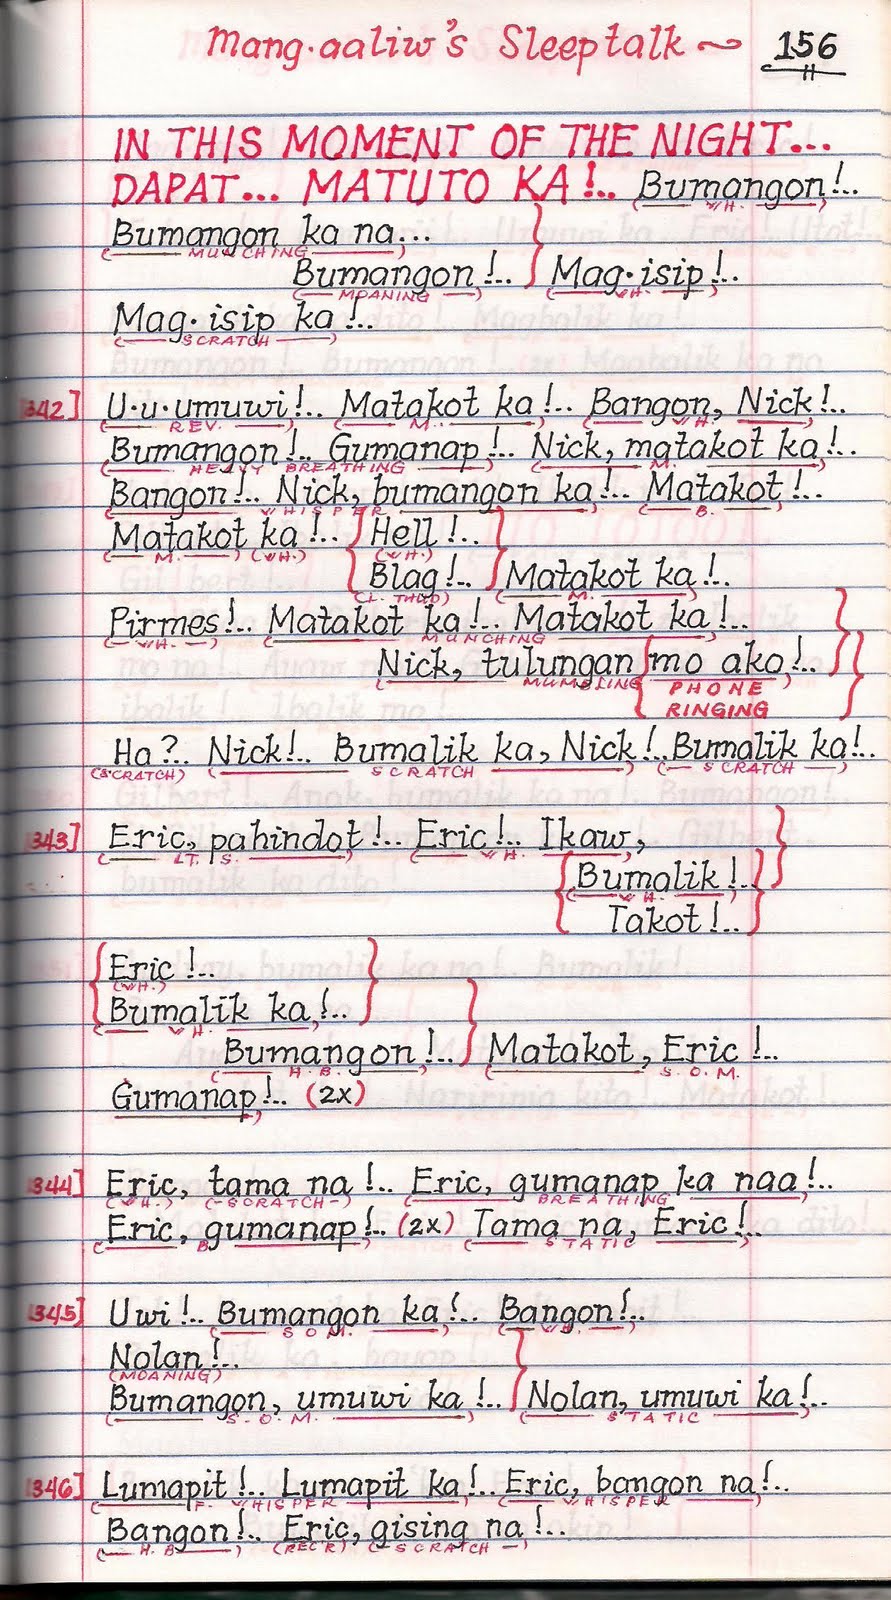 Mang·aaliw's Sleeptalk ~ 156
IN THIS MOMENT OF THE NIGHT...
DAPAT... MATUTO KA!.. Bumangon!..
WH.
Bumangon ka na...
MUNCHING
Bumangon!.. Mag·isip!..
MOANING WH.
Mag·isip ka!..
SCRATCH
1342] U·u·umuwi!.. Matakot ka!.. Bangon, Nick!..
REV. M. H.
Bumangon!.. Gumanap!.. Nick, matakot ka!..
HEAVY BREATHING M.
Bangon!.. Nick, bumangon ka!.. Matakot!..
WHISPER B.
Matakot ka!.. Hell!..
M. (WH.) (WH.)
Blag!.. Matakot ka!..
(L. THUD) M.
Pirmes!.. Matakot ka!.. Matakot ka!..
WH. MUNCHING
Nick, tulungan mo ako!..
MUMBLING PHONE
RINGING
Ha?.. Nick!.. Bumalik ka, Nick!.. Bumalik ka!..
(SCRATCH) SCRATCH SCRATCH
1343] Eric, pahindot!.. Eric!.. Ikaw,
LT. S. WH.
Bumalik!..
WH.
Takot!..
Eric!..
(WH.)
Bumalik ka!..
WH.
Bumangon!.. Matakot, Eric!..
H. B. S. O. M.
Gumanap!.. (2x)
1344] Eric, tama na!.. Eric, gumanap ka naa!..
(WH.) (-SCRATCH-) BREATHING
Eric, gumanap!.. (2x) Tama na, Eric!..
B. STATIC
1345] Uwi!.. Bumangon ka!.. Bangon!..
S O M. WH.
Nolan!..
(MOANING)
Bumangon, umuwi ka!.. Nolan, umuwi ka!..
S. O. M. STATIC
1346] Lumapit!.. Lumapit ka!.. Eric, bangon na!..
F. WHISPER WHISPER
Bangon!.. Eric, gising na!..
H. B (REC'R) SCRATCH